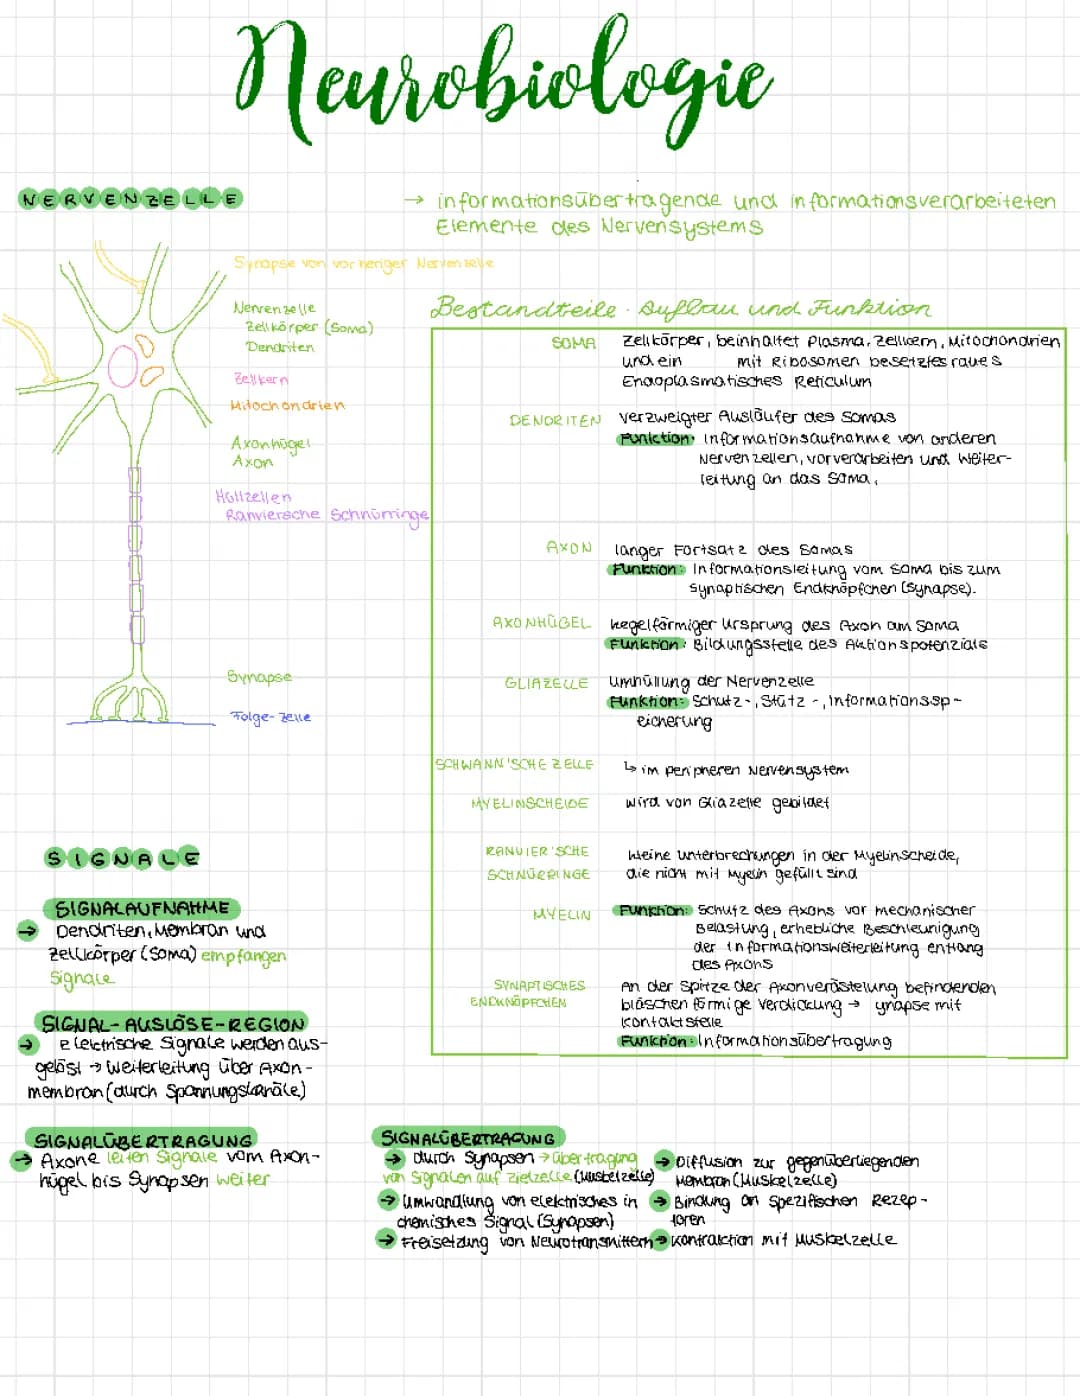 Neurobiologie
NERVENZELLE
→ informationsübertragende und informationsverarbeiteten
Elemente des Nervensystems
Synapse von vorheriger Nervenzelle
Nervenzelle
Zellkörper (Soma)
Dendriten
Zellkern
Mitochondrien
Axonhügel
Axon
Hüllzellen
Ranviersche Schnürringe
Synapse
Folge-Zelle
Bestandteile - Aufbau und Funktion
SOMA Zellkörper, beinhaltet Plasma, Zellkern, Mitochondrien
und ein mit Ribosomen besetztes raues
Endoplasmatisches Reticulum
DENDRITEN verzweigter Ausläufer des Somas
Funktion: Informationsaufnahme von anderen
Nervenzellen, vorverarbeiten und Weiter-
leitung an das Soma.
AXON langer Fortsatz des Somas
Funktion: Informationsleitung vom Soma bis zum
synaptischen Endknöpfchen (Synapse).
AXONHÜGEL kegelförmiger Ursprung des Axon am Soma
Funktion: Bildungsstelle des Aktionspotenzials
GLIAZELLE umhüllung der Nervenzelle
Funktion: Schutz-, Stütz-, Informationssp-
eicherung
SCHWANN'SCHE ZELLE ↳ im peripheren Nervensystem
MYELINSCHEIDE wird von Gliazelle gebildet
RANVIER'SCHE kleine unterbrechungen in der Myelinscheide,
SCHNÜRRINGE die nicht mit Myelin gefüllt sind
MYELIN Funktion: Schutz des Axons vor mechanischer
Belastung, erhebliche Beschleunigung
der Informationsweiterleitung entlang
des Axons
SYNAPTISCHES An der Spitze der Axonverästelung befindenden
ENDKNÖPFCHEN bläschenförmige Verdickung → ynapse mit
Kontaktstelle
Funktion: Informationsübertragung
SIGNALE
SIGNALAUFNAHME
→ Dendriten, Membran und
Zellkörper (Soma) empfangen
Signale
SIGNAL-AUSLÖSE-REGION
→ Elektrische Signale werden aus-
gelöst → Weiterleitung über Axon-
membran (durch Spannungskanäle)
SIGNALÜBERTRAGUNG
→ Axone leiten Signale vom Axon-
hügel bis Synapsen weiter
SIGNALÜBERTRAGUNG
→ durch Synapsen → übertragung
von Signalen auf Zielzelle (Muskelzelle)
→ Umwandlung von elektrisches in
chemisches Signal (Synapsen)
→ Freisetzung von Neurotransmittern
→ Diffusion zur gegenüberliegenden
Membran (Muskelzelle)
→ Bindung an spezifischen Rezep-
toren
→ Kontraktion mit Muskelzelle